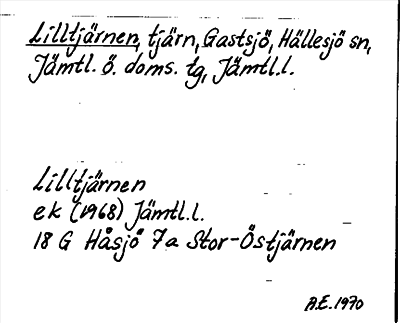 Lilltjärnen, tjärn, Gastsjö, Hällesjö sn,
Jämtl. ö. doms. tg, Jämtl.l.
Lilltjärnen
ek (1968) Jämtl.l.
18 G Håsjö 7a Stor-Östjärnen
R.E. 1970